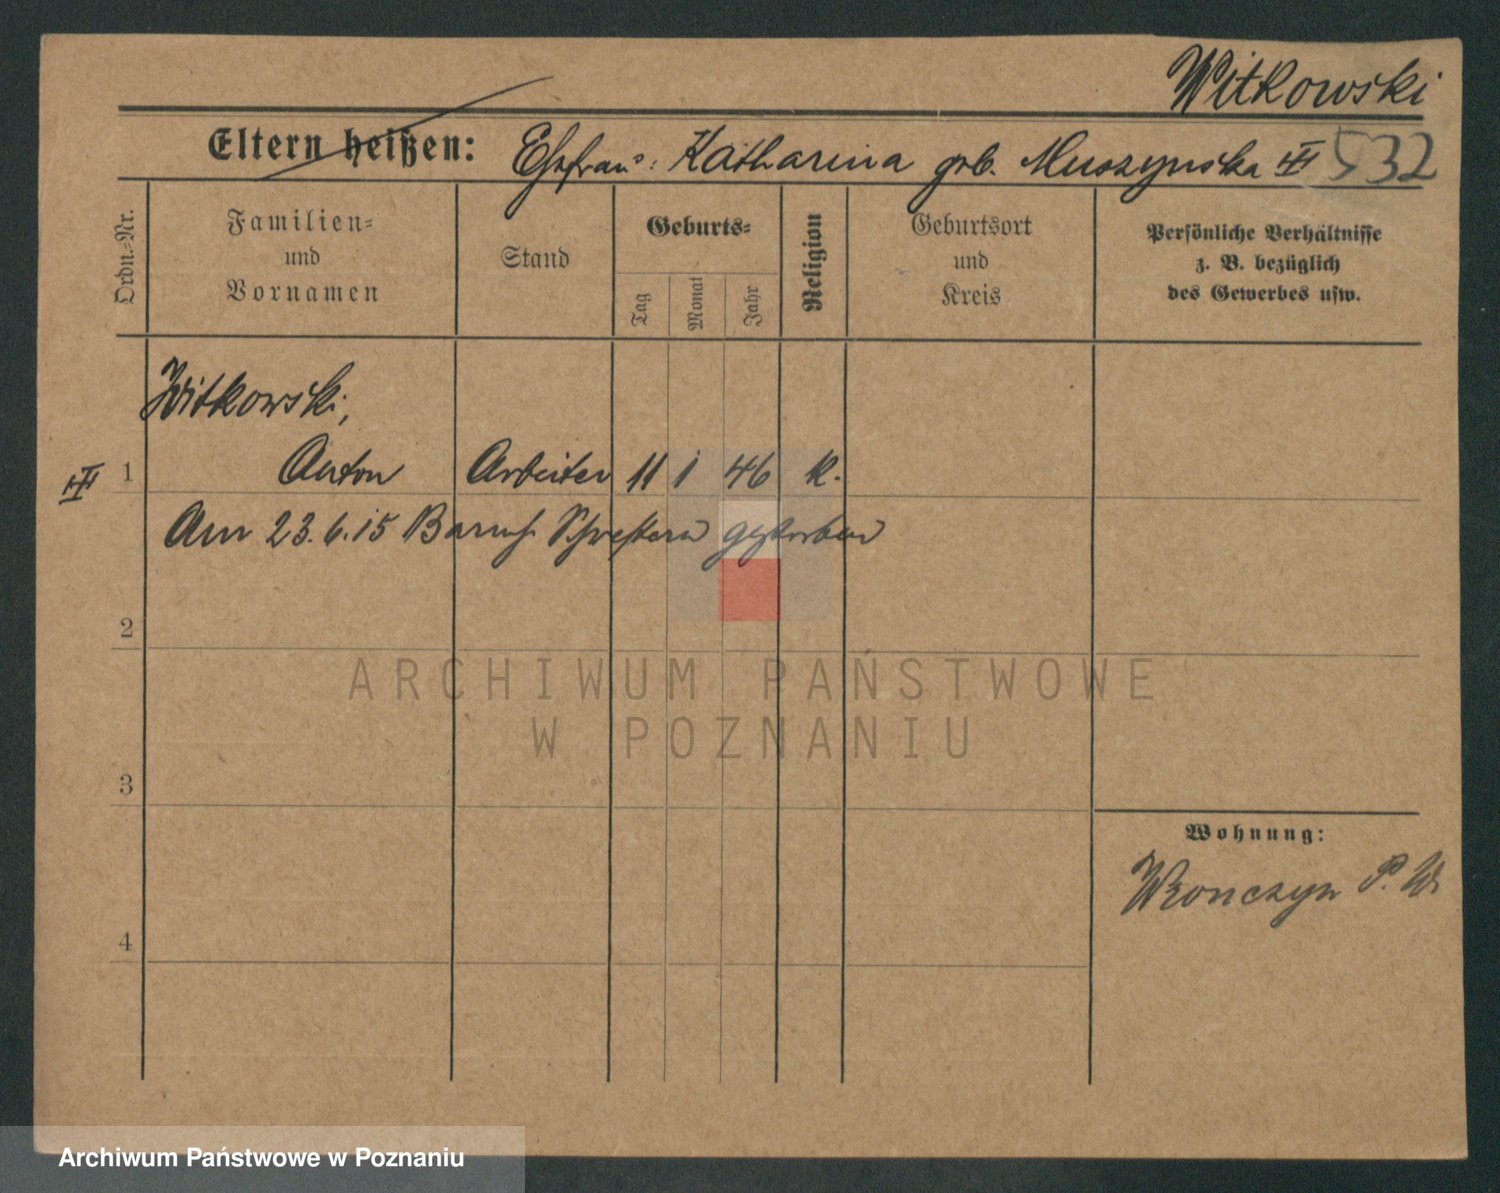 Witkowski
Eltern heißen: Ehefrau: Katharina geb. Muszynska III 532
Ordn.-Nr.
Familien- und Vornamen
Stand
Geburts-
Tag
Monat
Jahr
Religion
Geburtsort und Kreis
Persönliche Verhältnisse
z. B. bezüglich
des Gewerbes usw.
Witkowski,
III 1 Anton Arbeiter 11 1 46 k.
Am 23.6.15 Barmh. Schwestern gestorben
2
3
4
Wohnung:
Wronczyn P. W.
ARCHIWUM PAŃSTWOWE
W POZNANIU
Archiwum Państwowe w Poznaniu